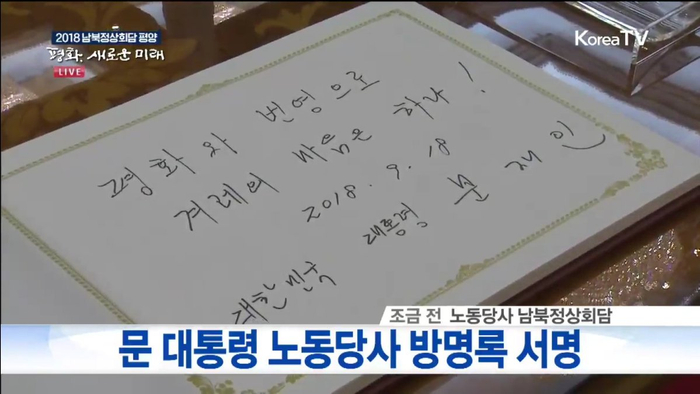 2018 남북정상회담 평양
평화, 새로운 미래
LIVE
KoreaTV
평화와 번영으로
겨레의 마음은 하나!
2018. 9. 18
대한민국 대통령 문재인
조금 전 노동당사 남북정상회담
문 대통령 노동당사 방명록 서명